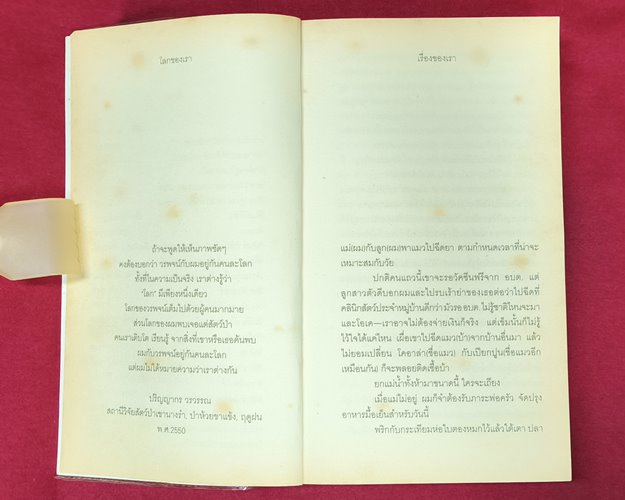 โลกของเรา
ถ้าจะพูดให้เห็นภาพชัดๆ
คงต้องบอกว่า วรพจน์กับผมอยู่กันคนละโลก
ทั้งที่ในความเป็นจริง เราต่างรู้ว่า
'โลก' มีเพียงหนึ่งเดียว
โลกของวรพจน์เต็มไปด้วยผู้คนมากมาย
ส่วนโลกของผมพบเจอแต่สัตว์ป่า
คนเราเติบโต เรียนรู้ จากสิ่งที่เขาหรือเธอค้นพบ
ผมกับวรพจน์อยู่กันคนละโลก
แต่ผมไม่ได้หมายความว่าเราต่างกัน
ปริญญากร วรวรรณ
สถานีวิจัยสัตว์ป่าเขานางรำ, ป่าห้วยขาแข้ง, ฤดูฝน
พ.ศ.2550
เรื่องของเรา
แม่(ผม)กับลูก(ผม)พาแมวไปฉีดยา ตามกำหนดเวลาที่น่าจะ
เหมาะสมกับวัย
ปกติคนแถวนี้เขาจะรอวัคซีนฟรีจาก อบต. แต่
ลูกสาวตัวดีบอกผมและไปรบเร้าย่าของเธอต่อว่าไปฉีดที่
คลินิกสัตว์ประจำหมู่บ้านดีกว่า มัวรอ อบต. ไม่รู้ชาติไหนจะมา
และโอเค—เราอาจไม่ต้องจ่ายเงินก็จริง แต่เข็มนั้นก็ไม่รู้
ไว้ใจได้แค่ไหน เผื่อเขาไปฉีดแมว(บ้า)จากบ้านอื่นมา แล้ว
ไม่ยอมเปลี่ยน โคอาล่า(ชื่อแมว) กับเปียกปูน(ชื่อแมวอีก
เหมือนกัน) ก็จะพลอยติดเชื้อบ้า
ยกแม่น้ำทั้งห้ามาขนาดนี้ ใครจะเถียง
เมื่อแม่ไม่อยู่ ผมก็จำต้องรับภาระพ่อครัว จัดปรุง
อาหารมื้อเย็นสำหรับวันนี้
พริกกับกระเทียมห่อใบตองหมกไว้แล้วใต้เตา ปลา